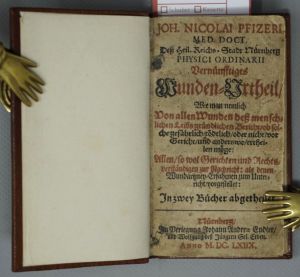 JOH. NICOLAI PFIZERI
MED. DOCT.
Deß Heil. Reichs-Stadt Nürnberg
PHYSICI ORDINARII
Vernünfftiges
Wunden-Urtheil,
Wie man nemlich
Von allen Wunden deß mensch-
lichen Leibs gründlichen Bericht/ ob sol-
che gefährlich/ tödtlich/ oder nicht/ vor
Gericht/ und anderswo/ erthei-
len möge:
Allen/ so wol Gerichten und Rechts-
verständigen zur Nachricht: als denen
Wundartzney-Erfahrnen zum Unter-
richt/ vorgestellet:
In zwey Bücher abgetheilet
Nürnberg/
In Verlegung Johann Andreæ Endter/
und Wolfgang deß Jüngern Sel. Erben.
Anno M. DC. LXIIX.